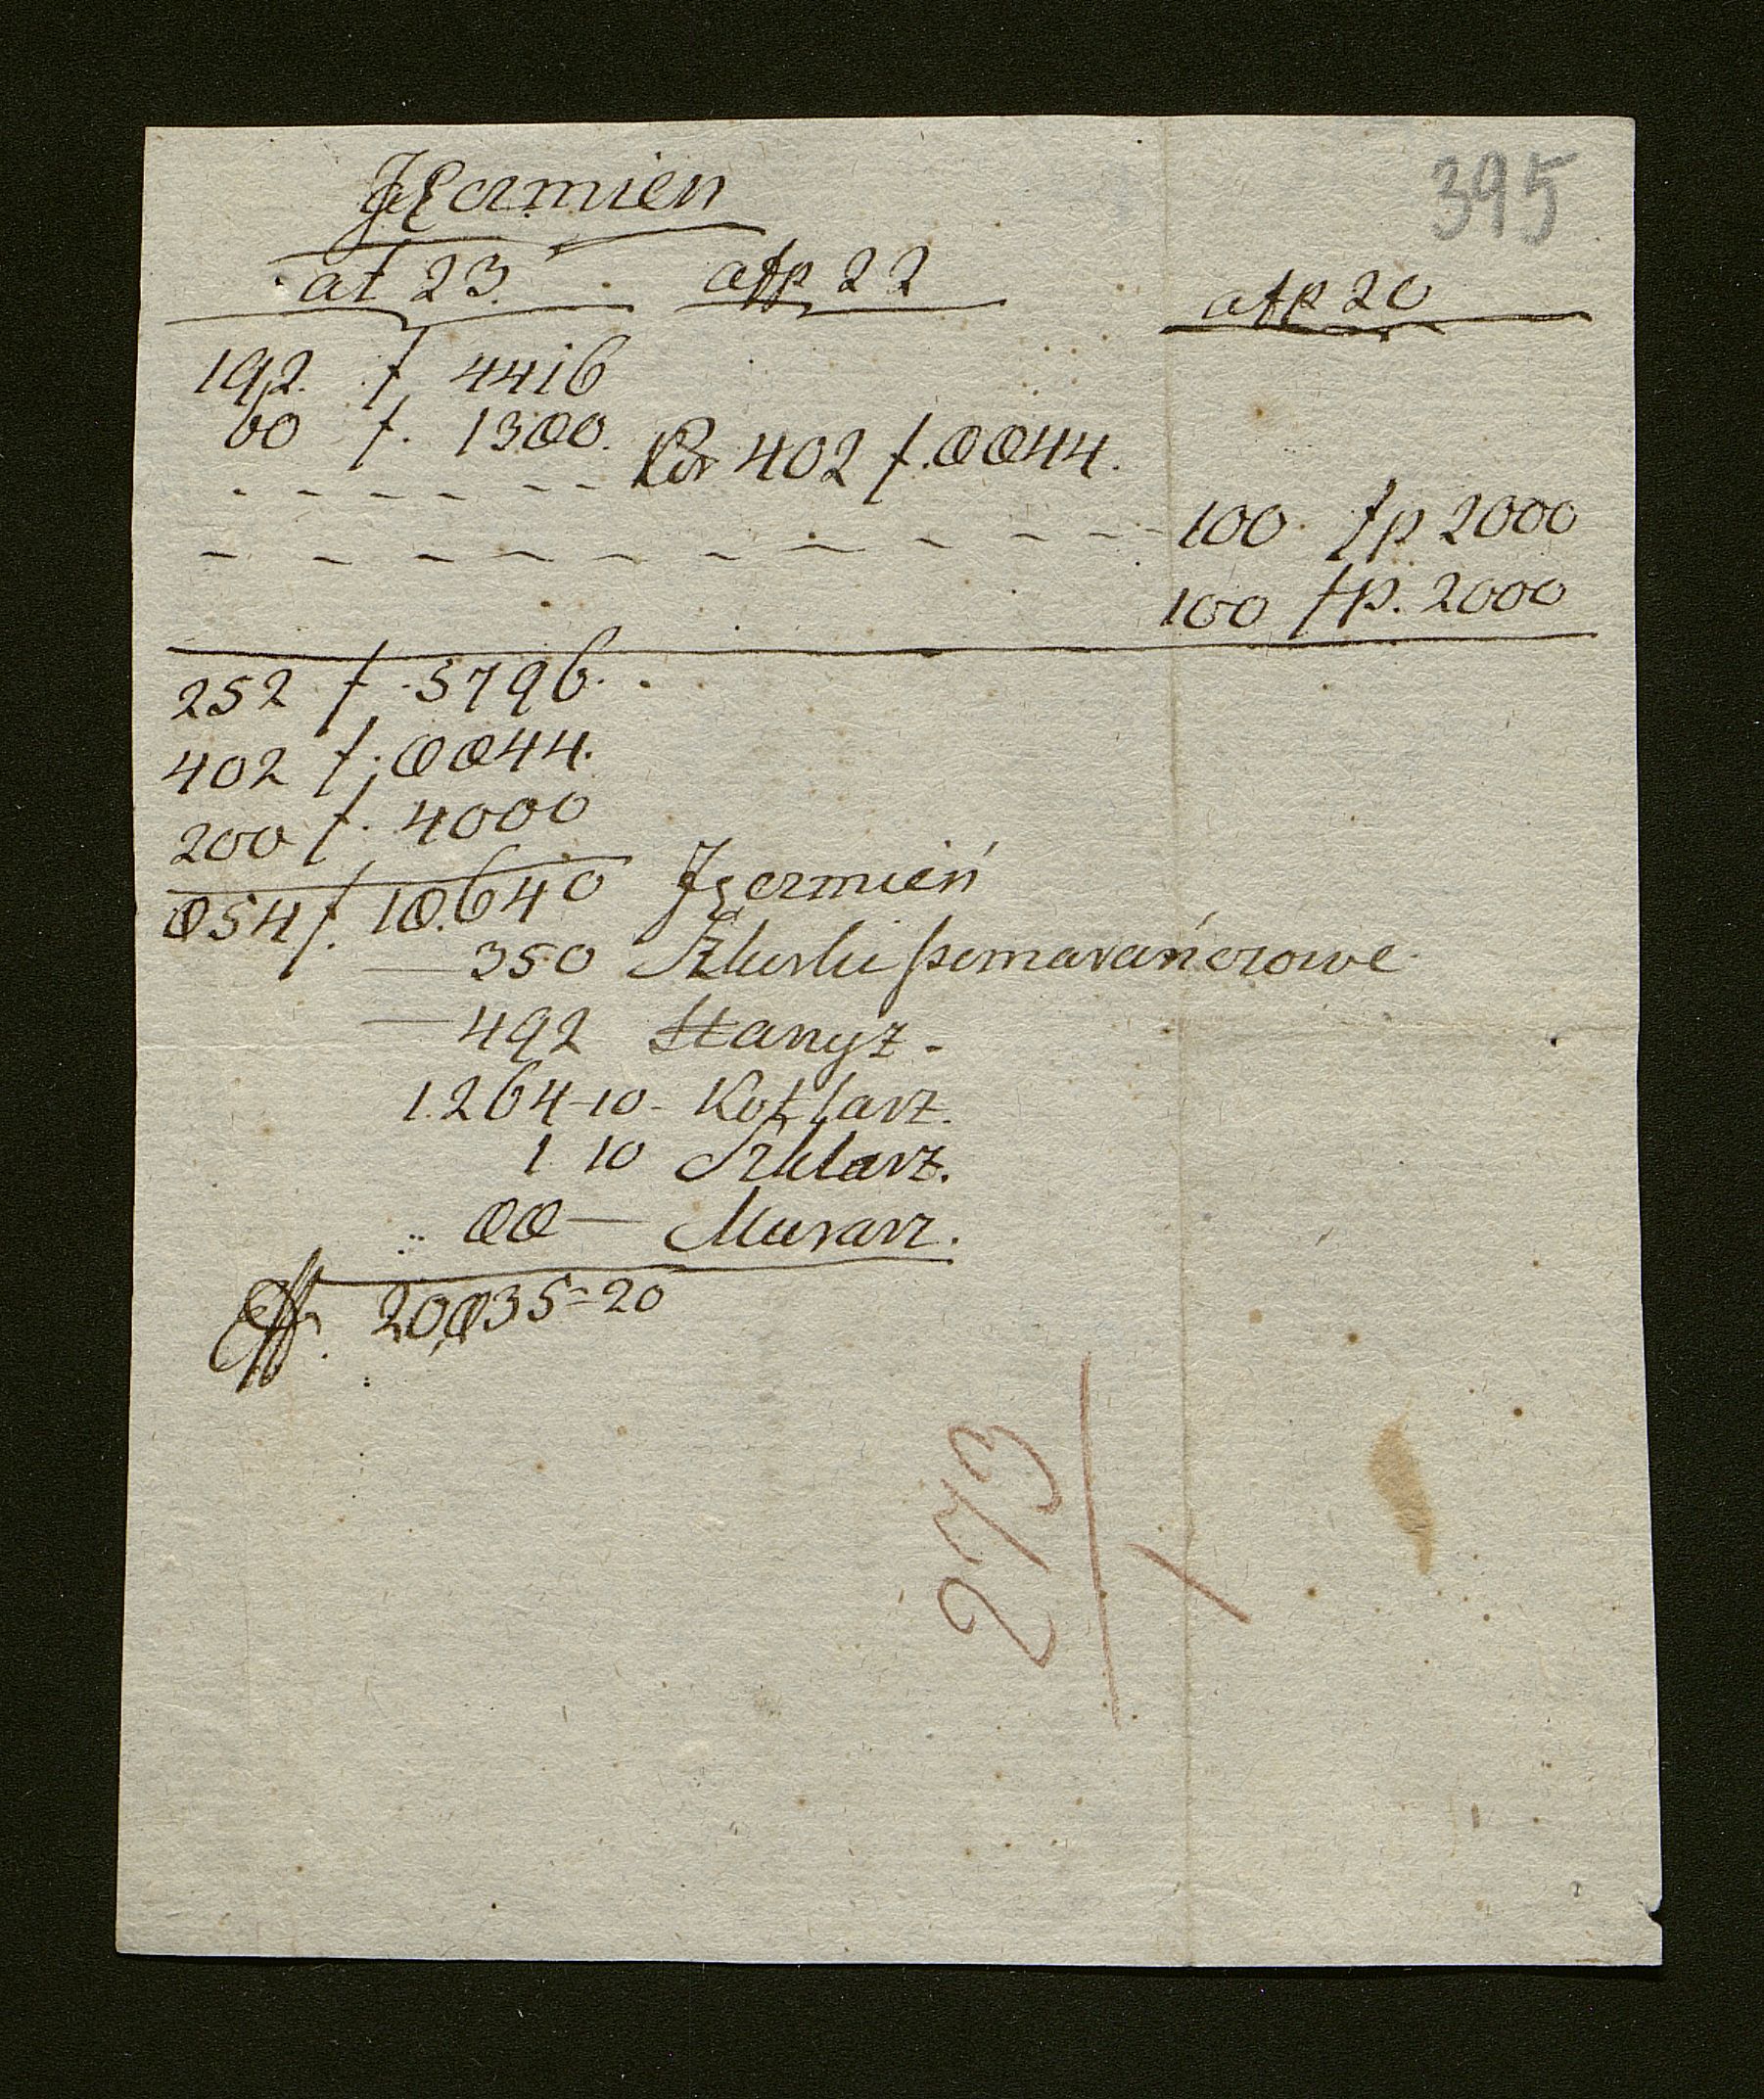 Jęczmien
395
at 23. afp 22 afp 20
192. f 4416
60 f. 1380. Kor 402 f. 8844.
100 fp 2000
100 fp. 2000
252 f. 5796.
402 f. 8844.
200 f. 4000
854 f. 18.640 Jęczmień
350 Szkurki pomarańczowe
492 Hanyz.
1.264-10- Kotlarz.
1 10 Szklarz.
88 — Murarz.
20,835=20
273